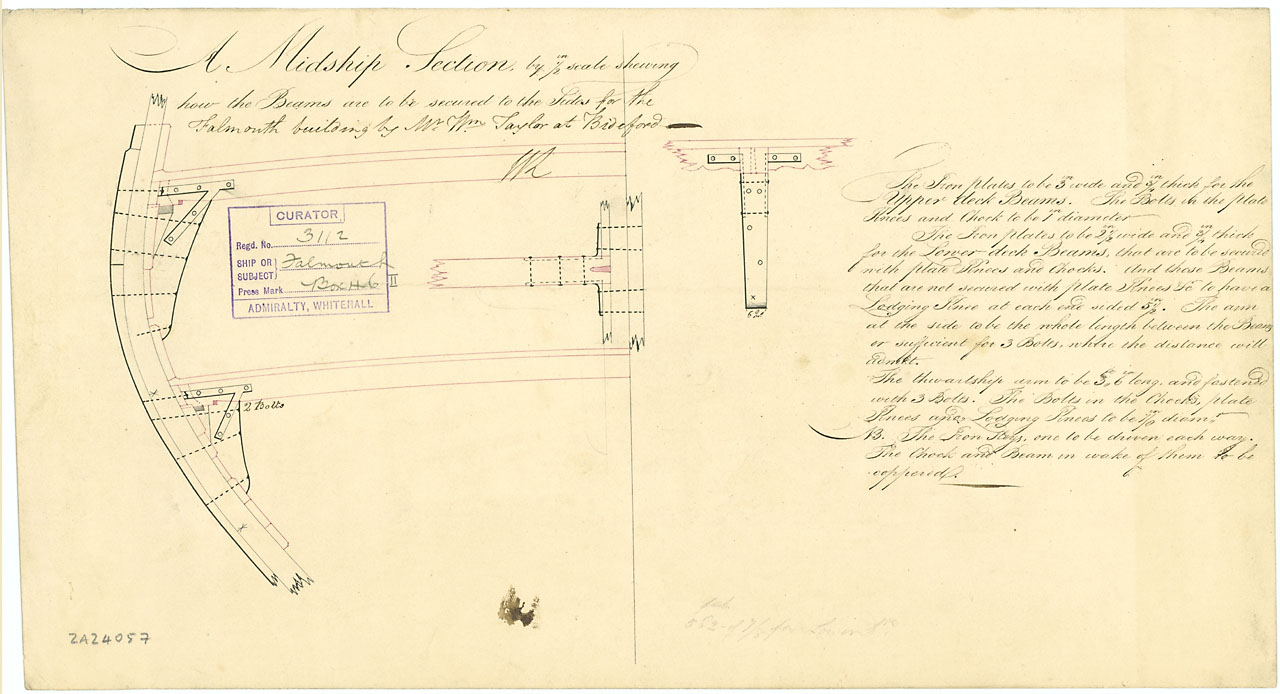 A Midship Section, by ½ in scale shewing
how the Beams are to be secured to the Sides for the
Falmouth building by Mr. Wm Taylor at Bideford
CURATOR
Regd. No. 3112
SHIP OR SUBJECT} Falmouth
Press Mark Box 46 II
ADMIRALTY, WHITEHALL
2 Bolts
The Iron plates to be 3 in wide and ¾ in thick for the
Upper deck Beams. The Bolts in the plate
Knees and Chock to be 1 in diameter
The Iron plates to be 2½ in wide and thick
for the Lower deck Beams, that are to be secured
with plate Knees and Chocks. And those Beams
that are not secured with plate Knees &c to have a
Lodging Knee at each end sided 5½ in. The arm
at the side to be the whole length between the Beams
or sufficient for 3 Bolts, where the distance will
admit.
The thwartship arm to be 3 ft 6 in long, and fastend
with 3 Bolts. The Bolts in the Chocks, plate
Knees and Lodging Knees to be diamr.
NB. The Iron Keys, one to be driven each way.
The Chock and Beam in wake of them to be
coppered.
ZAZ4057